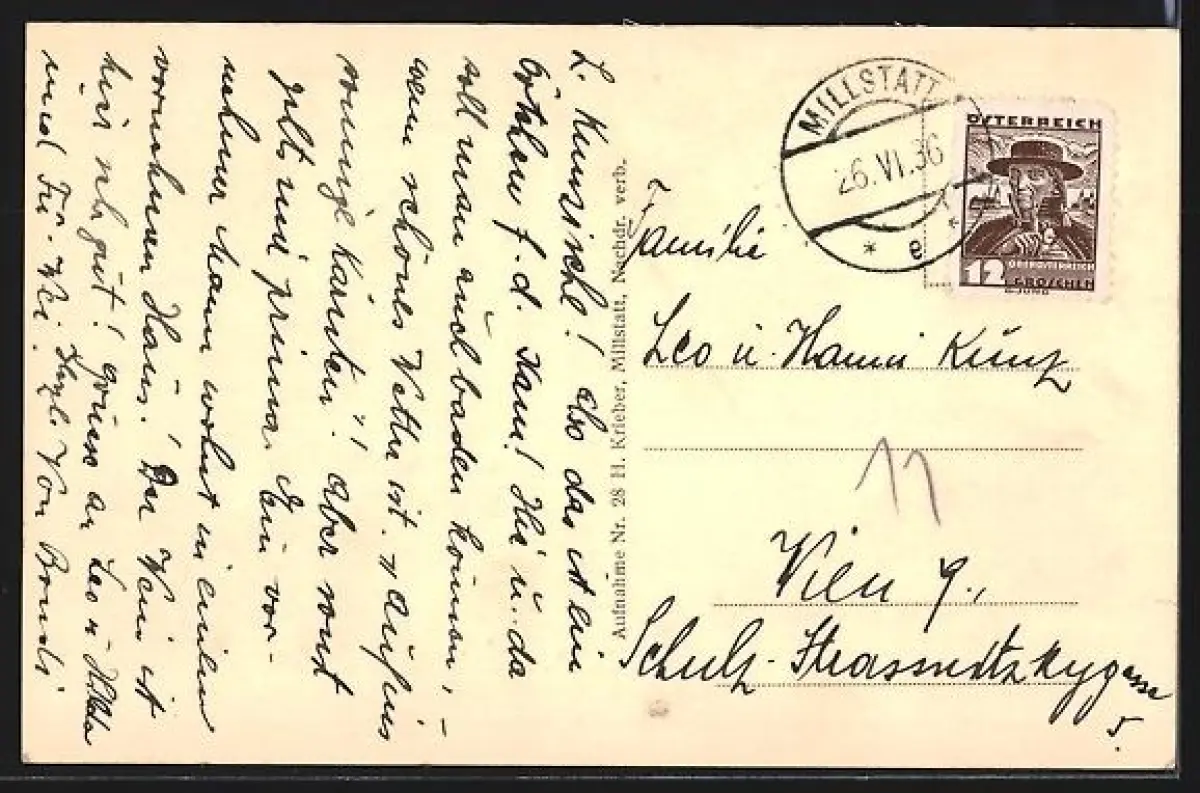 L. Kunzische! Also das ist ein
f. d. Nam! Hie u. da
soll man auch baden können,
wenn schönes Wetter ist. "Auf ins
sonnige Kärnten"! Aber sonst
gehts mir prima. Ein vor-
nehmer Mann wohnt in einem
vornehmen Haus! Der Wein ist
hier sehr gut! Grüsse an Leo u. Hilda
und Frl. Herzl. Von
Aufnahme Nr. 28 H. Krieber, Millstatt, Nachdr. verb.
MILLSTATT
26.VI.36
* e *
ÖSTERREICH
12
OBERÖSTERREICH
GROSCHEN
G.JUNG
Familie
Leo u. Hanni Kunz
11
Wien 9.,
Schulz-Strassnitzkygasse
5.